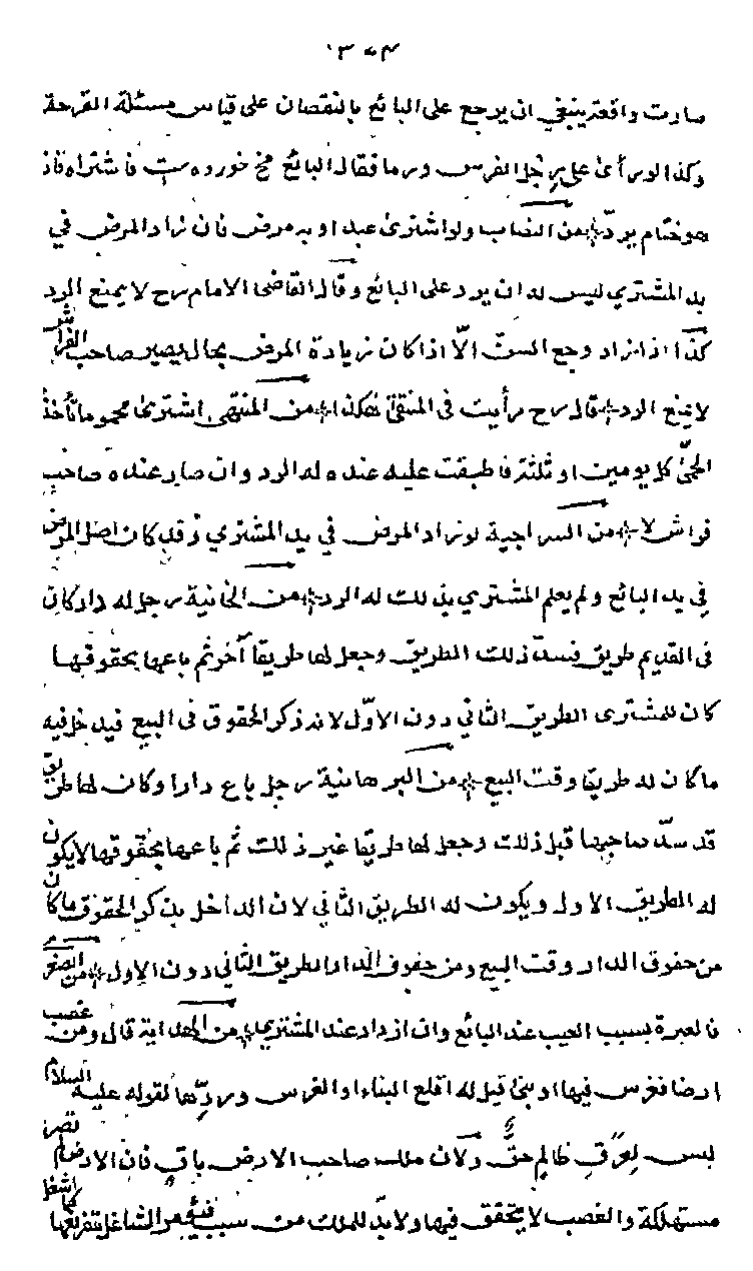 ١٣٧٤
صارت واقعة ينبغي ان يرجع على البائع بالنقصان على قياس مسئلة القرحة
وكذا لو رأى على رجل الفرس ورما فقال البائع خورده ست فاشتراه فاذ
هو ختام يرد من النصاب ولو اشترى عبدا وبه مرض فان زاد المرض في
يد المشتري ليس له ان يرد على البائع وقال القاضي الامام رح لا يمنع الرد
كذا اذا زاد وجع السن الّا اذا كان زيادة المرض بحال يصير صاحب الفراش
لا يمنع الرد قال رح رأيت في المنتقى هكذا من المنتقى اشترى محموما تأخذ
الحمّى كل يومين او ثلثة فاطبقت عليه عنده له الرد وان صار عنده صاحب
فراش لا من السراجية لو زاد المرض في يد المشتري وقد كان اصل المرض
في يد البائع ولم يعلم المشتري بذلك له الرد من الخانية رجل له دار كان
في القديم طريق فسدّ ذلك الطريق وجعل لها طريقا آخر ثم باعها بحقوقها
كان للمشترى الطريق الثاني دون الاوّل لانه ذكر الحقوق في البيع فيدخل فيه
ما كان له طريقا وقت البيع من البرهانية رجل باع دارا وكان لها طريق
قد سدّ صاحبها قبل ذلك وجعل لها طريقا غير ذلك ثم باعها بحقوقها لا يكون
له الطريق الاول ويكون له الطريق الثاني لان الداخل بذكر الحقوق ما كان
من حقوق الدار وقت البيع ومن حقوق الدار الطريق الثاني دون الاول من الصغرى
فالعبرة بسبب العيب عند البائع وان ازداد عند المشتري من الهداية قال ومن غصب
ارضا فغرس فيها او بنى قيل له اقلع البناء او الغرس وردّها لقوله عليه السلام
ليس لعرق ظالم حقّ ولان ملك صاحب الارض باق فان الارض لم تصر
مستهلكة والغصب لا يتحقق فيها ولا بدّ للملك من سبب فيؤمر الشاغل بتفريغها كما اشغل